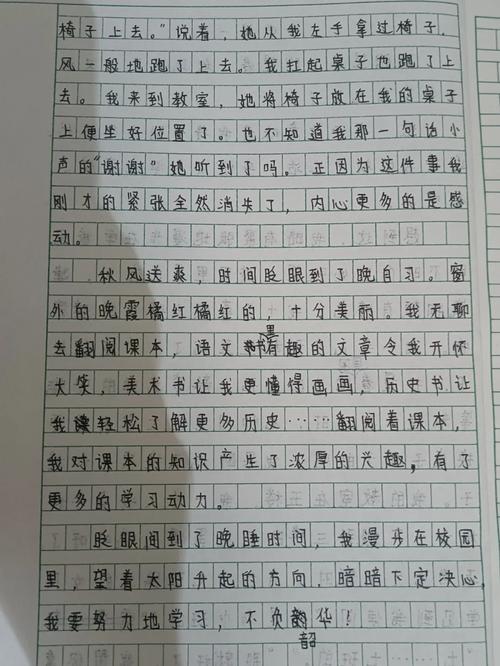 椅子上去。”说着，她从我左手拿过椅子，
风一般地跑了上去。我扛起桌子也跑了上
去。我来到教室，她将椅子放在我的桌子
上便坐好位置了。也不知道我那一句话小
声的“谢谢”她听到了吗。正因为这件事我
刚才的紧张全然消失了，内心更多的是感
动。
秋风送爽，时间眨眼到了晚自习。窗
外的晚霞橘红橘红的，十分美丽。我无聊
去翻阅课本，语文书里有趣的文章令我开怀
大笑，美术书让我更懂得画画，历史书让
我轻松了解更多历史……翻阅着课本，
我对课本的知识产生了浓厚的兴趣，有了
更多的学习动力。
眨眼间到了晚睡时间，我漫步在校园
里，望着太阳升起的方向，暗暗下定决心，
我要努力地学习，不负韶华！